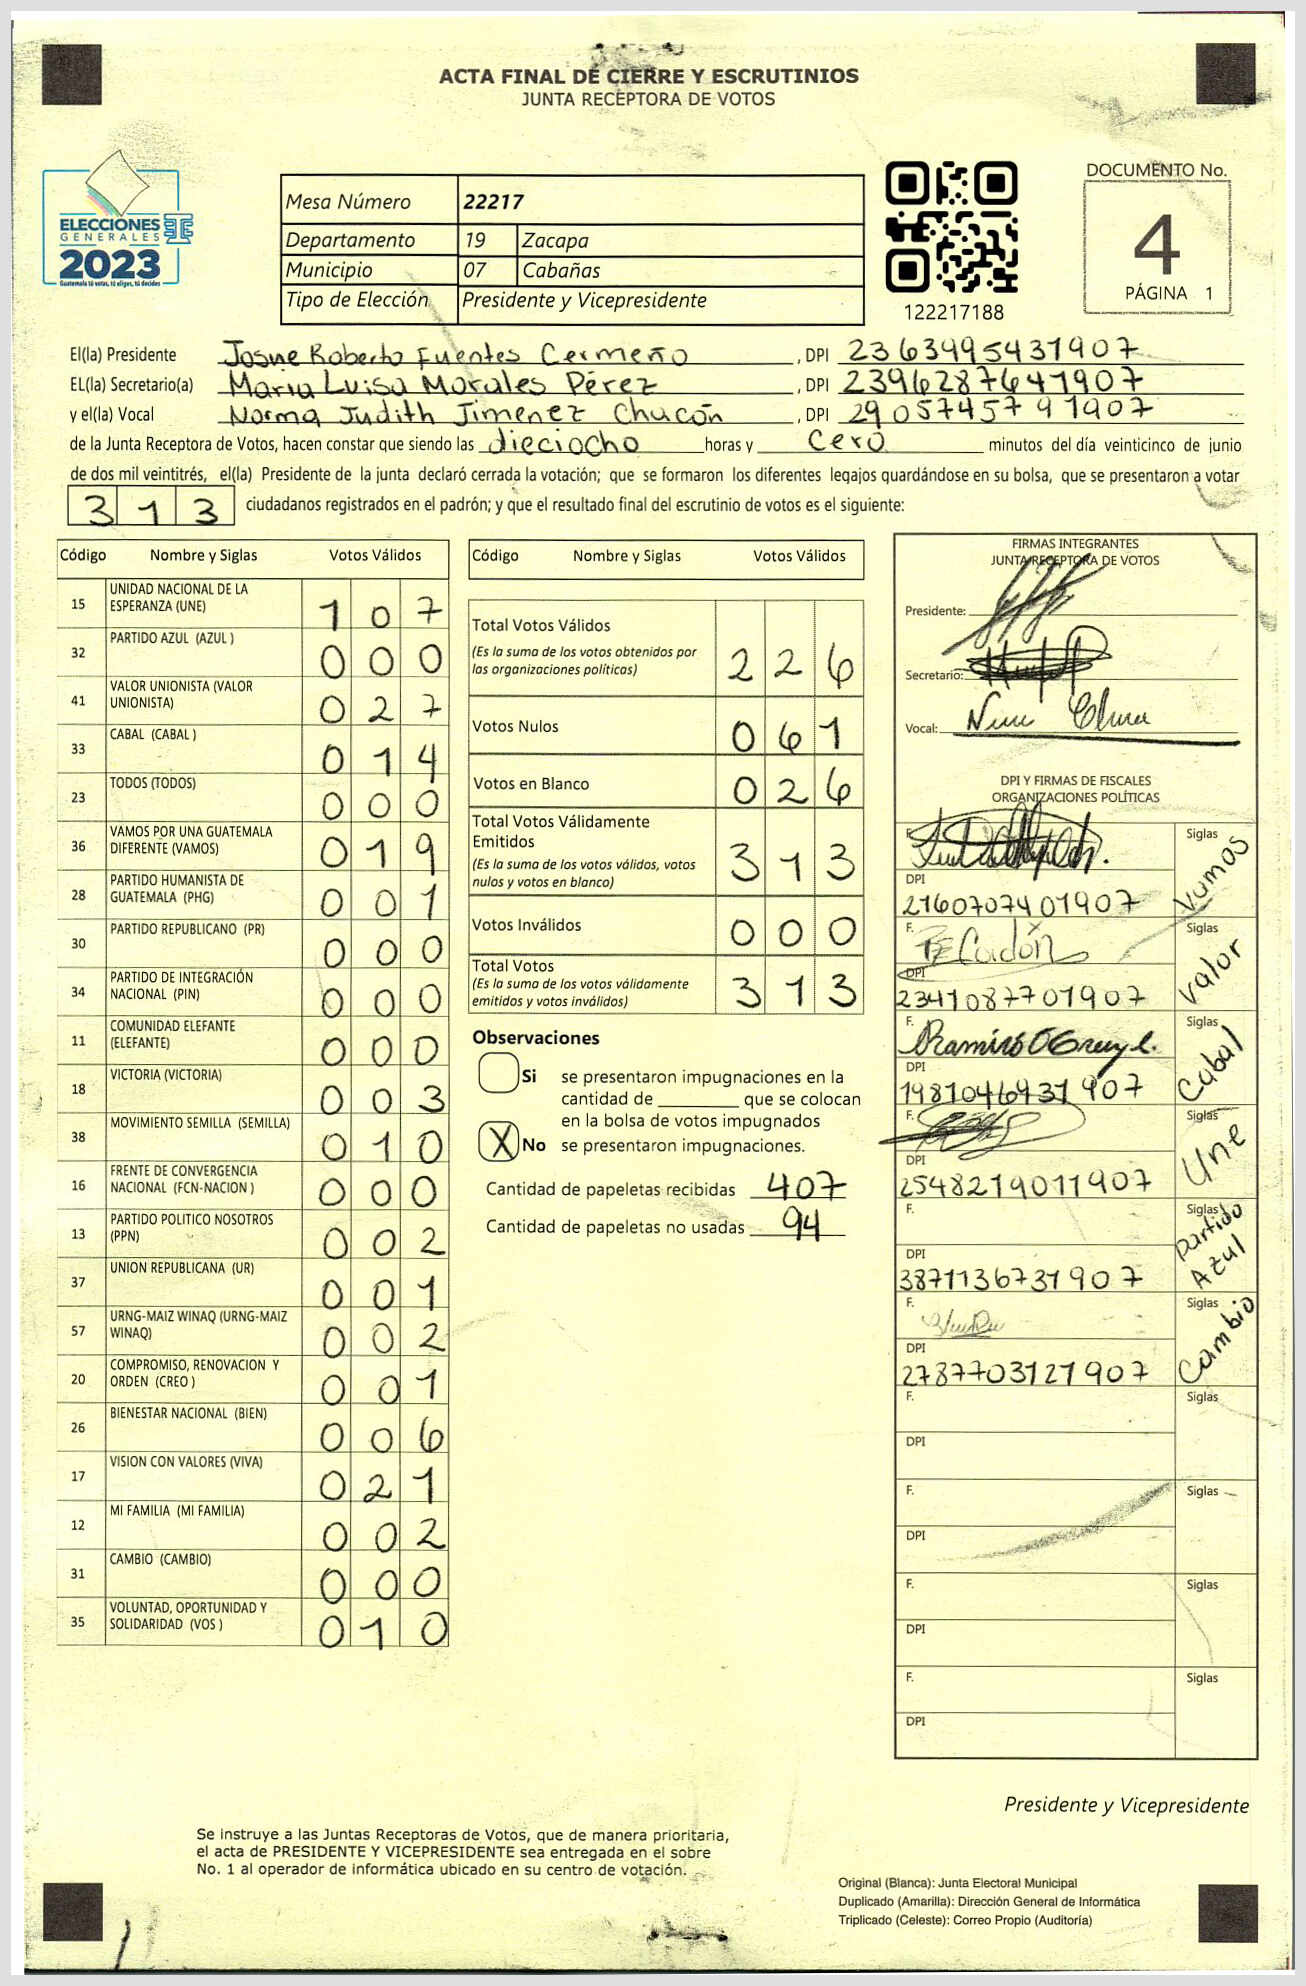 ACTA FINAL DE CIERRE Y ESCRUTINIOS
JUNTA RECEPTORA DE VOTOS
ELECCIONES
GENERALES
2023
Guatemala tú votas, tú eliges, tú decides
Mesa Número 22217
Departamento 19 Zacapa
Municipio 07 Cabañas
Tipo de Elección Presidente y Vicepresidente
122217188
DOCUMENTO No.
4
PÁGINA 1
El(la) Presidente Josue Roberto Fuentes Cermeño, DPI 2363495431907
EL(la) Secretario(a) Maria Luisa Morales Pérez, DPI 2396287641907
y el(la) Vocal Norma Judith Jimenez Chacón, DPI 2905745791907
de la Junta Receptora de Votos, hacen constar que siendo las dieciocho horas y cero minutos del día veinticinco de junio
de dos mil veintitrés, el(la) Presidente de la junta declaró cerrada la votación; que se formaron los diferentes legajos quardándose en su bolsa, que se presentaron a votar
313 ciudadanos registrados en el padrón; y que el resultado final del escrutinio de votos es el siguiente:
Código Nombre y Siglas Votos Válidos
15 UNIDAD NACIONAL DE LA ESPERANZA (UNE) 107
32 PARTIDO AZUL (AZUL ) 000
41 VALOR UNIONISTA (VALOR UNIONISTA) 027
33 CABAL (CABAL ) 014
23 TODOS (TODOS) 000
36 VAMOS POR UNA GUATEMALA DIFERENTE (VAMOS) 019
28 PARTIDO HUMANISTA DE GUATEMALA (PHG) 001
30 PARTIDO REPUBLICANO (PR) 000
34 PARTIDO DE INTEGRACIÓN NACIONAL (PIN) 000
11 COMUNIDAD ELEFANTE (ELEFANTE) 000
18 VICTORIA (VICTORIA) 003
38 MOVIMIENTO SEMILLA (SEMILLA) 010
16 FRENTE DE CONVERGENCIA NACIONAL (FCN-NACION ) 000
13 PARTIDO POLITICO NOSOTROS (PPN) 002
37 UNION REPUBLICANA (UR) 001
57 URNG-MAIZ WINAQ (URNG-MAIZ WINAQ) 002
20 COMPROMISO, RENOVACION Y ORDEN (CREO ) 001
26 BIENESTAR NACIONAL (BIEN) 006
17 VISION CON VALORES (VIVA) 021
12 MI FAMILIA (MI FAMILIA) 002
31 CAMBIO (CAMBIO) 000
35 VOLUNTAD, OPORTUNIDAD Y SOLIDARIDAD (VOS ) 010
Código Nombre y Siglas Votos Válidos
Total Votos Válidos 226
(Es la suma de los votos obtenidos por
las organizaciones políticas)
Votos Nulos 061
Votos en Blanco 026
Total Votos Válidamente
Emitidos 313
(Es la suma de los votos válidos, votos
nulos y votos en blanco)
Votos Inválidos 000
Total Votos 313
(Es la suma de los votos válidamente
emitidos y votos inválidos)
Observaciones
Si se presentaron impugnaciones en la
cantidad de ________ que se colocan
en la bolsa de votos impugnados
X No se presentaron impugnaciones.
Cantidad de papeletas recibidas 407
Cantidad de papeletas no usadas 94
FIRMAS INTEGRANTES
JUNTA RECEPTORA DE VOTOS
Presidente:
Secretario:
Vocal:
DPI Y FIRMAS DE FISCALES
ORGANIZACIONES POLÍTICAS
F. Siglas Vamos
DPI
2160707401907
F. Siglas Valor
DPI
2341087701907
F. Siglas Cabal
DPI
1981046931907
F. Siglas Une
DPI
2548219011907
F. Siglas Partido Azul
DPI
3871136731907
F. Siglas Cambio
DPI
2787703121907
F. Siglas
DPI
F. Siglas
DPI
F. Siglas
DPI
F. Siglas
DPI
Presidente y Vicepresidente
Se instruye a las Juntas Receptoras de Votos, que de manera prioritaria,
el acta de PRESIDENTE Y VICEPRESIDENTE sea entregada en el sobre
No. 1 al operador de informática ubicado en su centro de votación.
Original (Blanca): Junta Electoral Municipal
Duplicado (Amarilla): Dirección General de Informática
Triplicado (Celeste): Correo Propio (Auditoría)